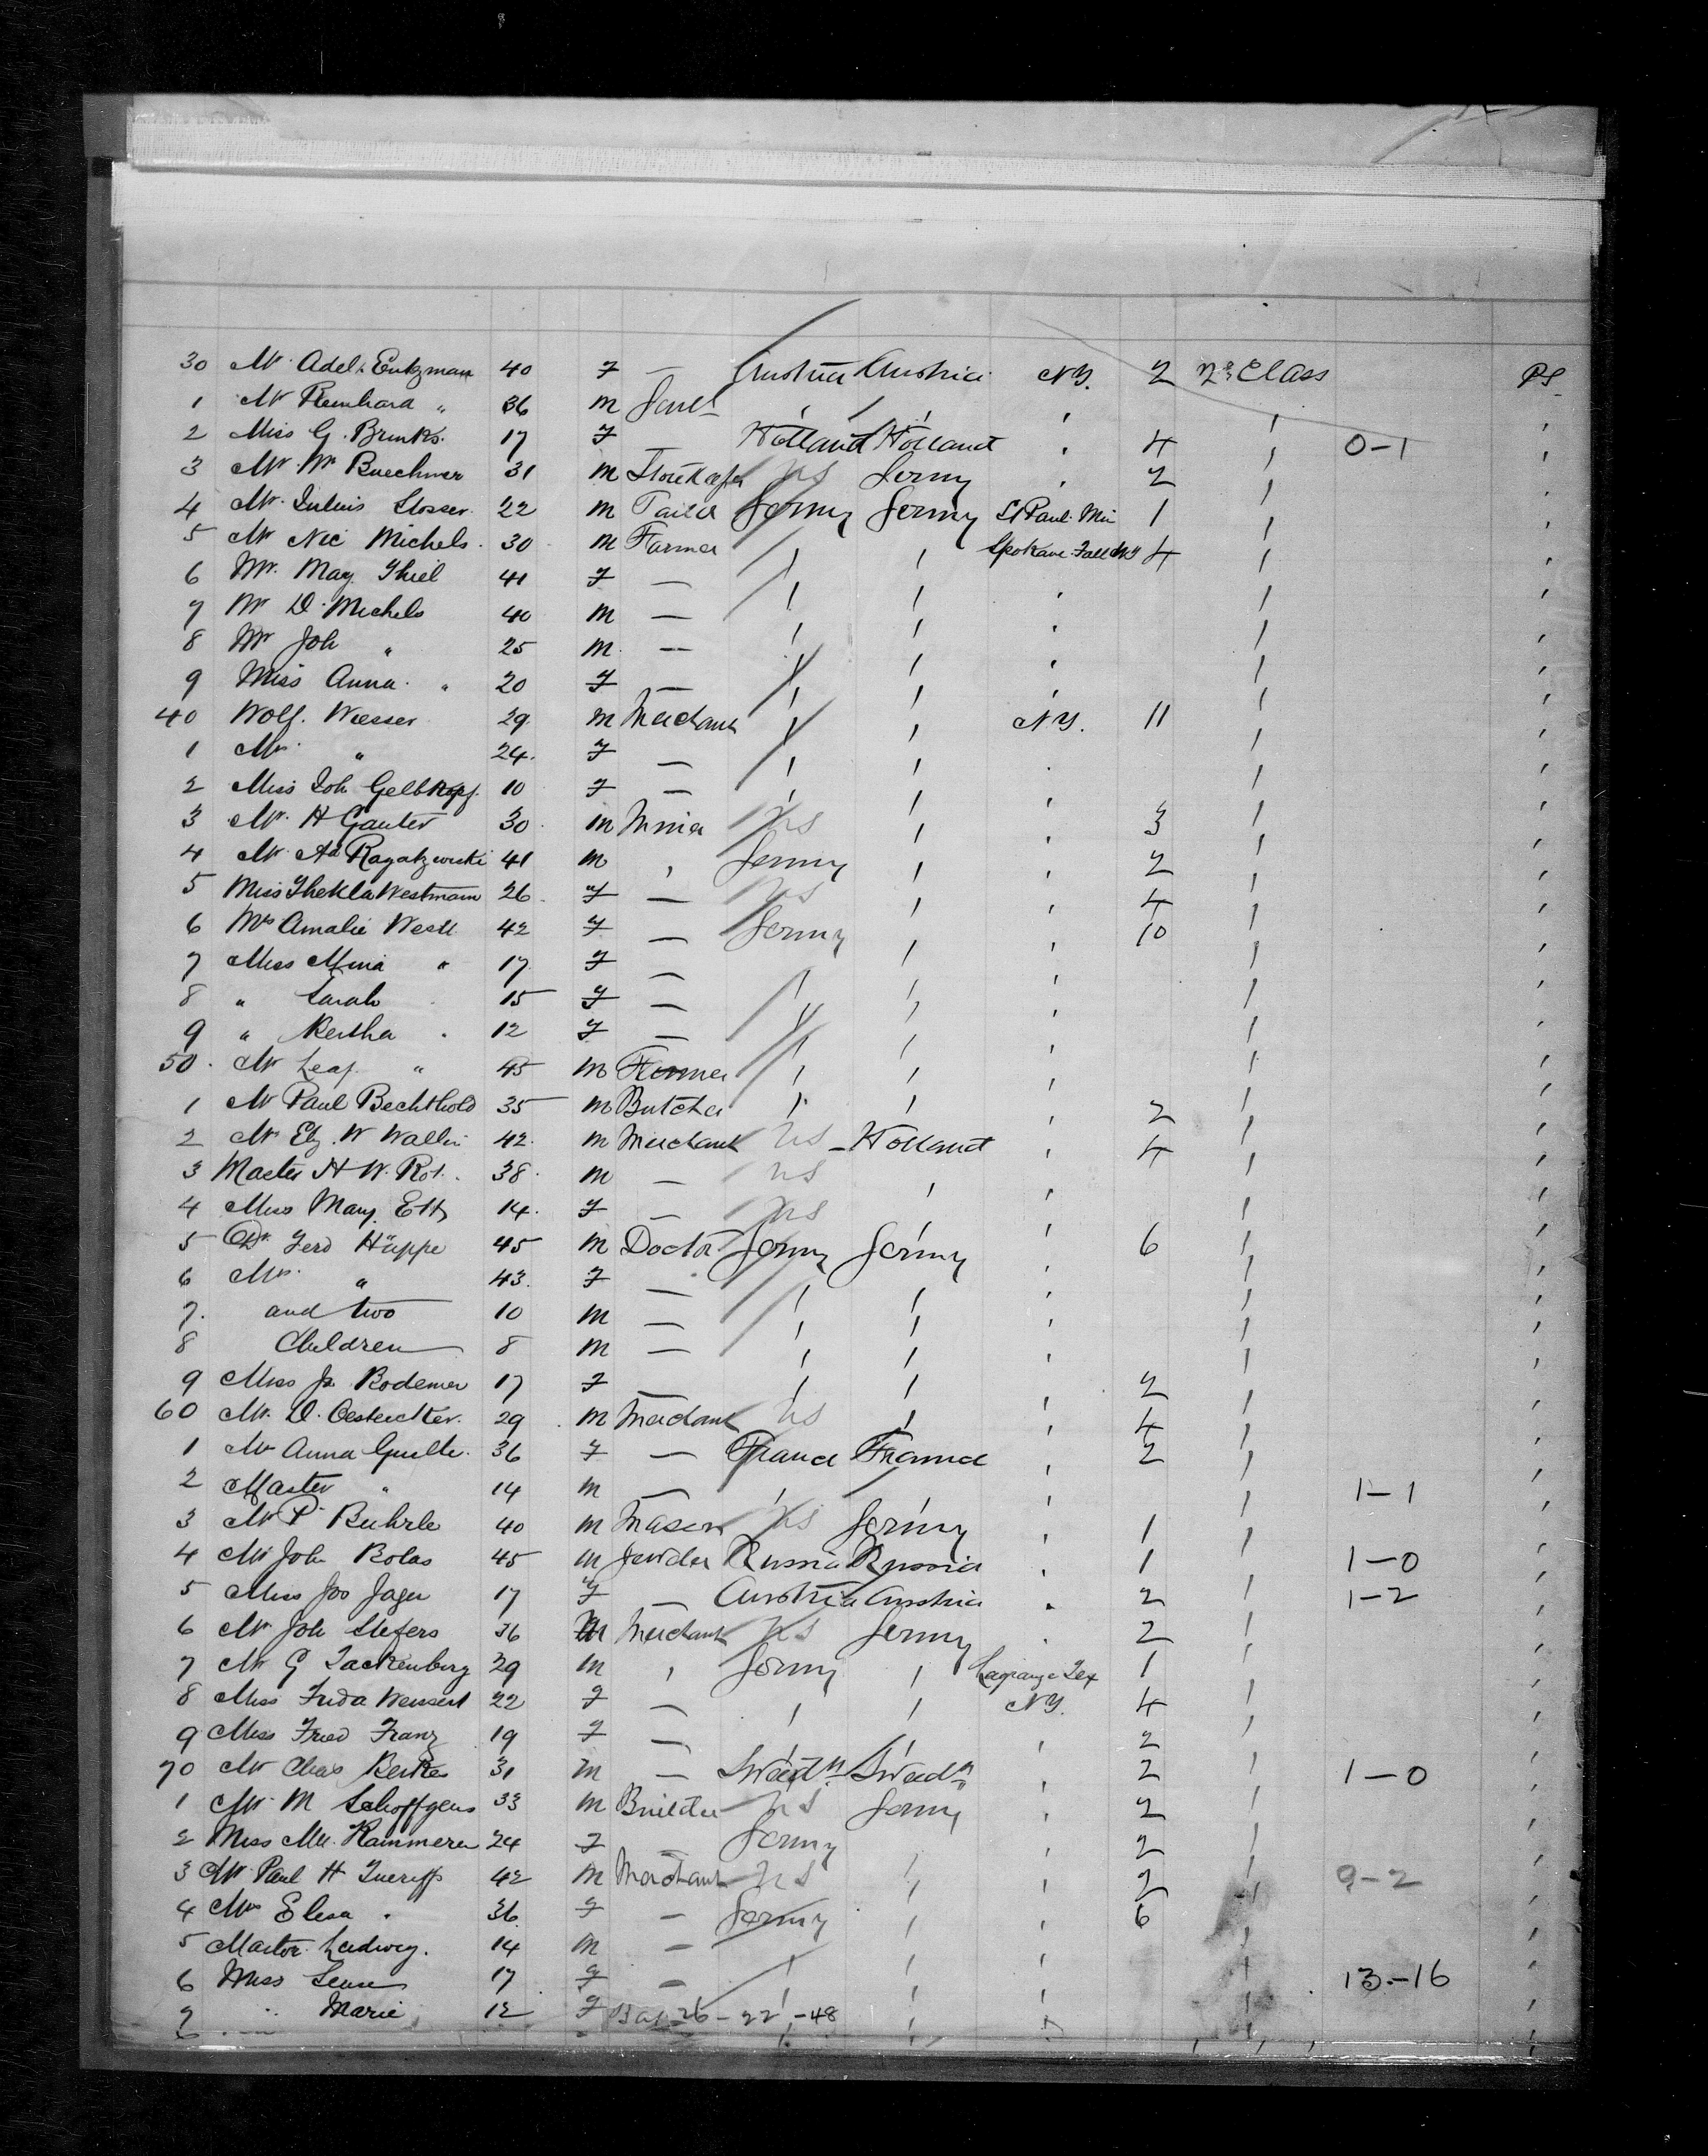 30 Mrs. Adel. Entzman 40 F — Austria Austria N.Y. 2 2nd Class PS
1 Mr Reinhard " 36 M
2 Miss G. Brinks. 17 F — Holland Holland ' 4 ' 0-1 '
3 Mr. Wm Buechner 31 M Storekeeper US Germy ' 2 ' '
4 Mr. Julius Slosser 22 M Tailor Germy Germy St Paul. Min 1 ' '
5 Mr Nic Michels. 30 M Farmer ' ' Spokane Falls 4 ' '
6 Mrs. May. Thiel 41 F — ' ' ' ' '
7 Mr D. Michels 40 M — ' ' ' ' '
8 Mr Joh " 25 M — ' ' ' ' '
9 Miss Anna. " 20 F — ' ' ' ' '
40 Wolf. Wiesser 29 M Merchant ' ' N.Y. 11 ' '
1 Mrs. " 24 F — ' ' ' ' '
2 Miss Joh Gelbkopf. 10 F — ' ' ' ' '
3 Mr. H Ganter 30 M US ' ' 3 ' '
4 Mr. Ad Ragatzwski 41 M ' Germy ' ' 2 ' '
5 Miss Thekla Westmann 26 F — US ' ' 4 ' '
6 Mrs Amalie 42 F — Germy ' ' 10 ' '
7 Miss Mina " 17 F — ' ' ' ' '
8 " Sarah 15 F — ' ' ' ' '
9 " Bertha 12 F — ' ' ' ' '
50 Mr " 45 M Farmer ' ' ' ' '
1 Mr Paul Bechthold 35 M Butcher ' ' ' 2 ' '
2 Mr W Wallin 42 M Merchant US — Holland ' 4 ' '
3 Master H W. Rot. 38 M — US ' ' ' '
4 Miss Mary. 14 F — US ' ' ' '
5 Dr. Ferd Hüppe 45 M Doctor Germy Germy ' 6 ' '
6 Mrs. " 43 F — ' ' ' ' '
7. and two 10 M — ' ' ' ' '
8 Children 8 M — ' ' ' ' '
9 Miss Bodemer 17 F — ' ' ' 2 ' '
60 Mr. D. 29 M Merchant US ' ' 4 ' '
1 Mrs Anna 36 F — France France ' 2 ' '
2 Master " 14 M — ' ' ' ' 1-1 '
3 Mr P. Buhrle 40 M Mason US Germy ' 1 ' '
4 Mr John Bolas 45 M Russia Russia ' 1 ' 1-0 '
5 Miss Jos Jager 17 F — Austria Austria " 2 ' 1-2 '
6 Mr Joh Stefers 36 M Merchant US Germy ' 2 ' '
7 Mr G Tackenberg 29 M ' Germy ' Lagrange Tex 1 ' '
8 Miss Frida Weissert 22 F — ' ' N.Y. 4 ' '
9 Miss Fried Franz 19 F — ' ' ' 2 ' '
70 Mr Chas 31 M — Swedn Swedn ' 2 ' 1-0 '
1 Mr. M Schoffgens 33 M Builder US Germy ' 2 ' '
2 Miss Kammerer 24 F Germy ' 2 ' '
3 Mr Paul H 42 M Merchant US ' ' 2 ' 9-2 '
4 Mrs Elesa " 36 F — Germy ' ' 6 ' '
5 Master Ludwig. 14 M — ' ' ' ' '
6 Miss 17 F — ' ' ' ' 13-16 '
7 " Marie 12 F 26-22-48 ' ' ' '